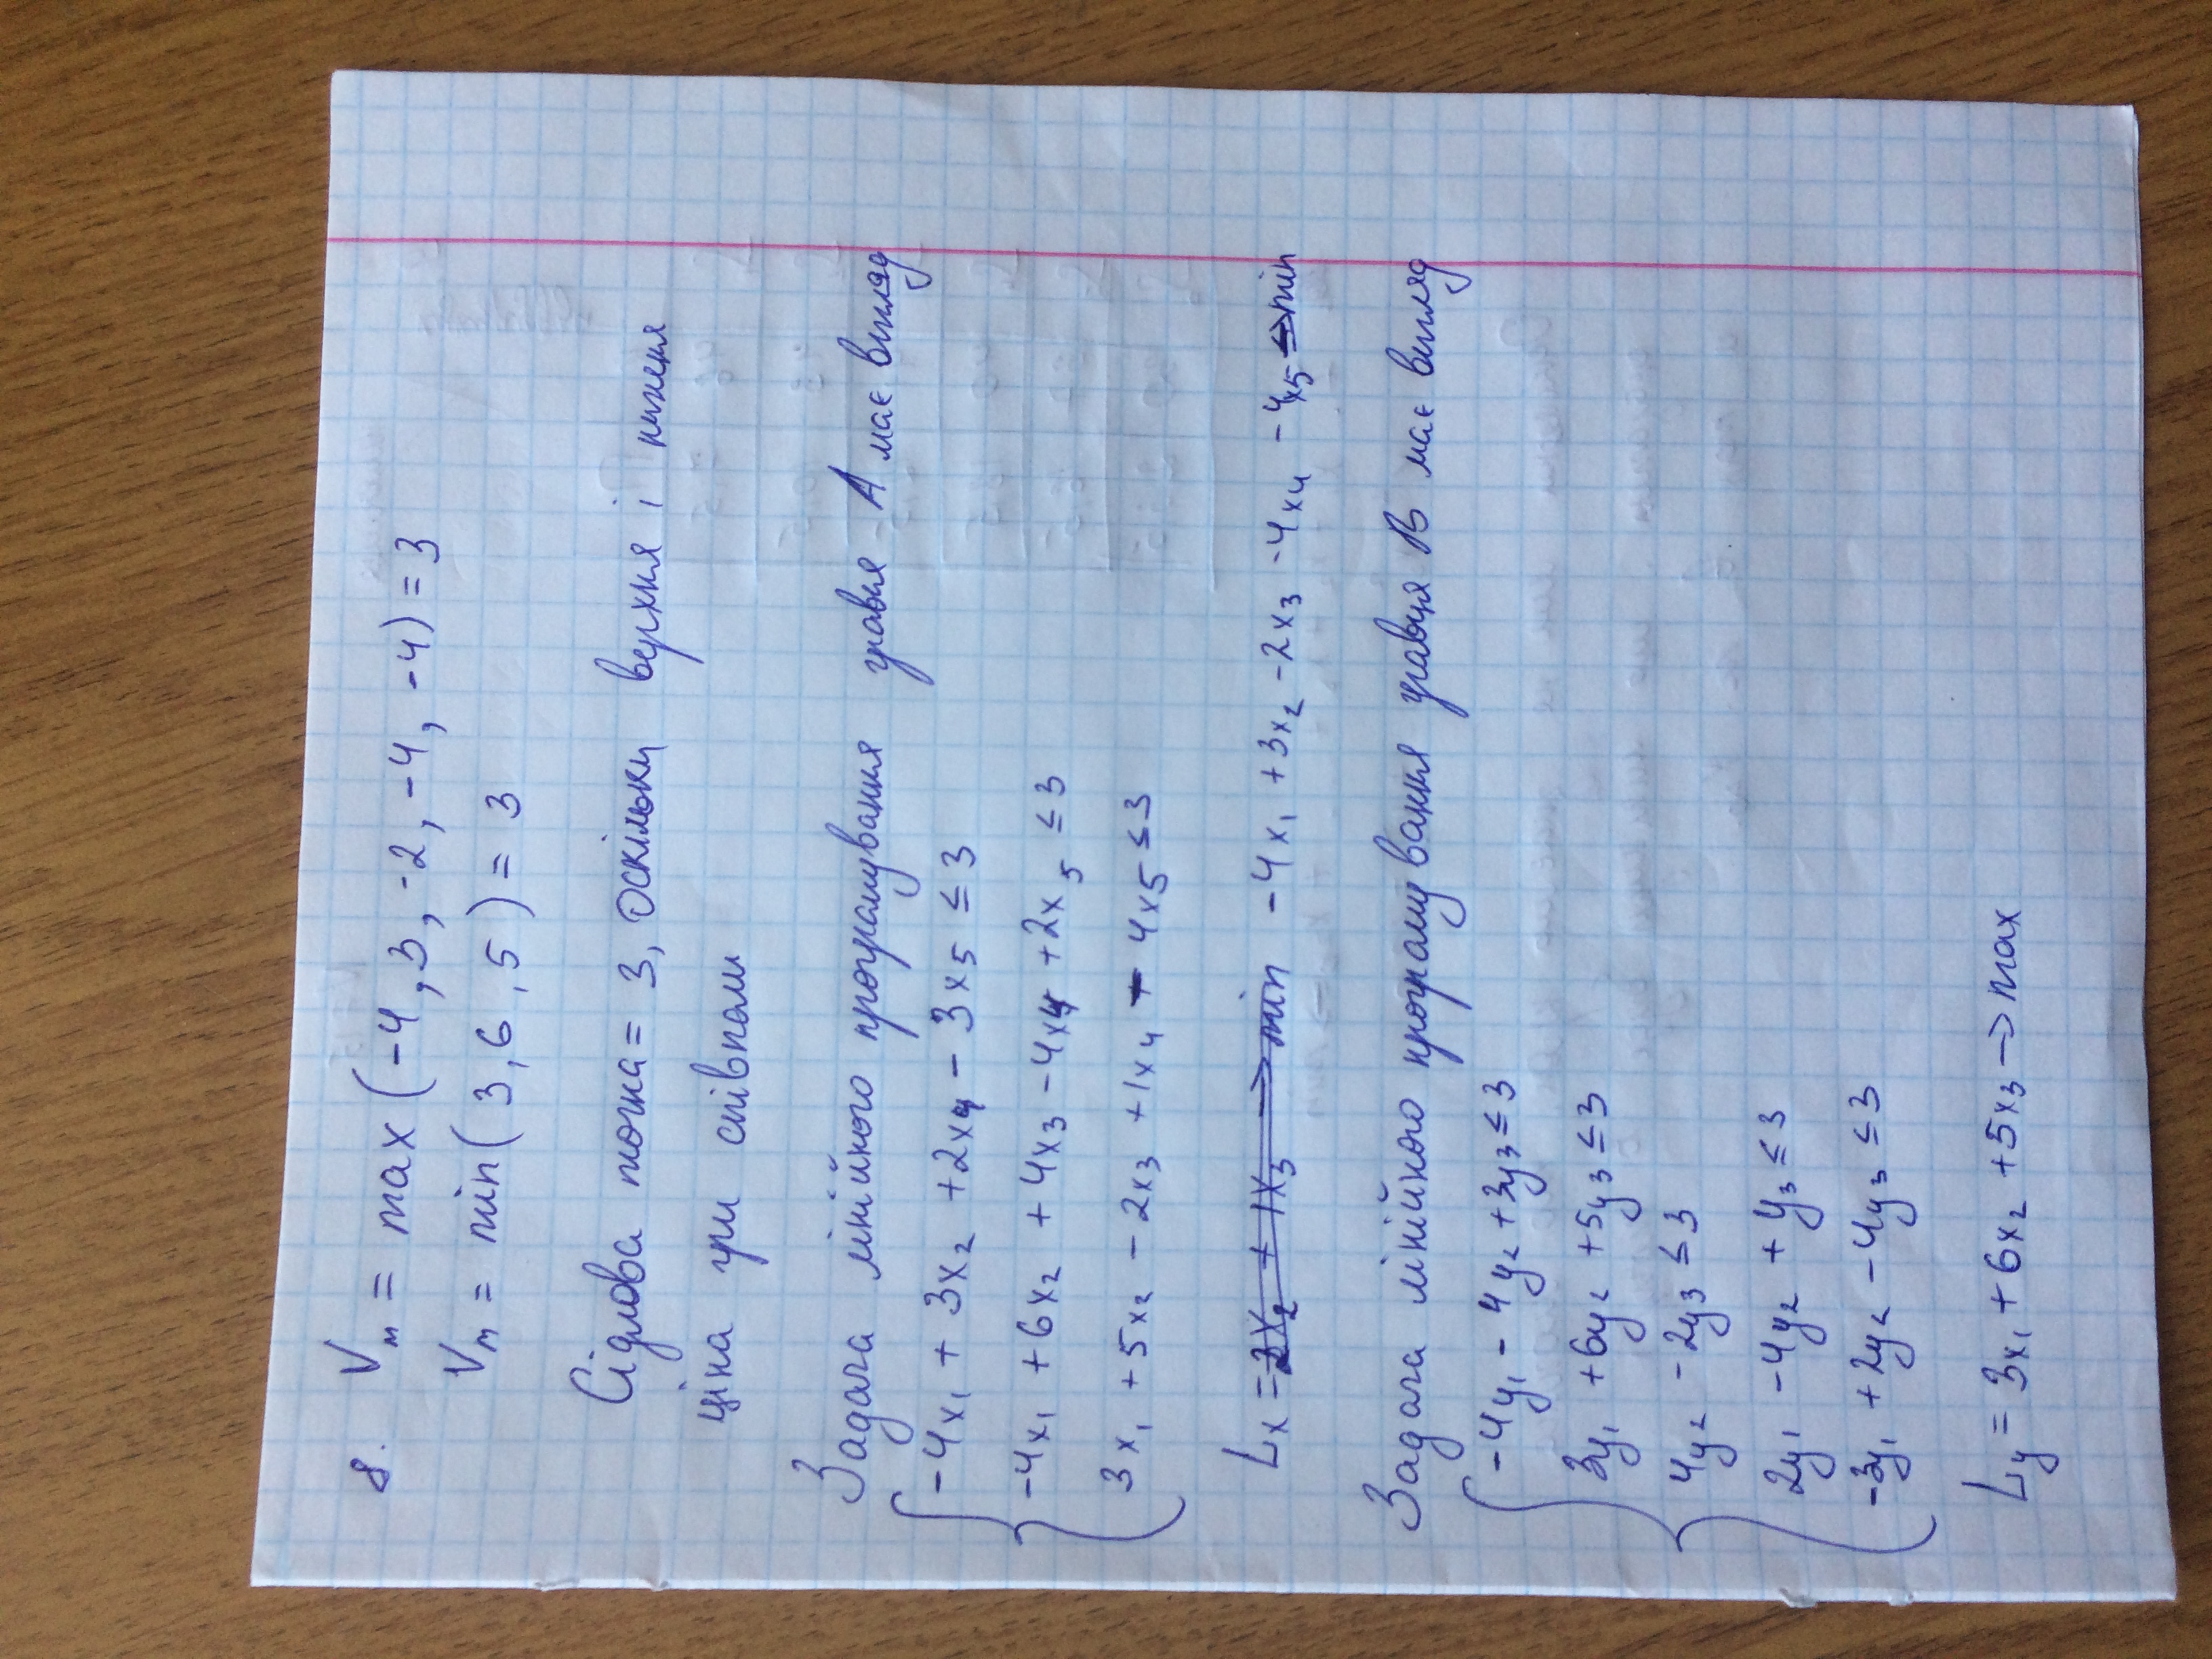 8. Vₘ = max (-4, 3, -2, -4, -4) = 3
Vₘ = min( 3, 6, 5 ) = 3
Сідлова точка = 3, оскільки верхня і нижня
ціна гри співпали
Задача лінійного програмування гравця А має вигляд
-4x₁ + 3x₂ + 2x₄ - 3x₅ ≤ 3
-4x₁ + 6x₂ + 4x₃ - 4x₄ + 2x₅ ≤ 3
3x₁ + 5x₂ - 2x₃ + 1x₄ - 4x₅ ≤ 3
Lₓ = 3x₂ + 1x₃ → min -4x₁ + 3x₂ - 2x₃ - 4x₄ - 4x₅ → min
Задача лінійного програмування гравця В має вигляд
-4y₁ - 4y₂ + 3y₃ ≤ 3
3y₁ + 6y₂ + 5y₃ ≤ 3
4y₂ - 2y₃ ≤ 3
2y₁ - 4y₂ + y₃ ≤ 3
-3y₁ + 2y₂ - 4y₃ ≤ 3
Ly = 3x₁ + 6x₂ + 5x₃ → max